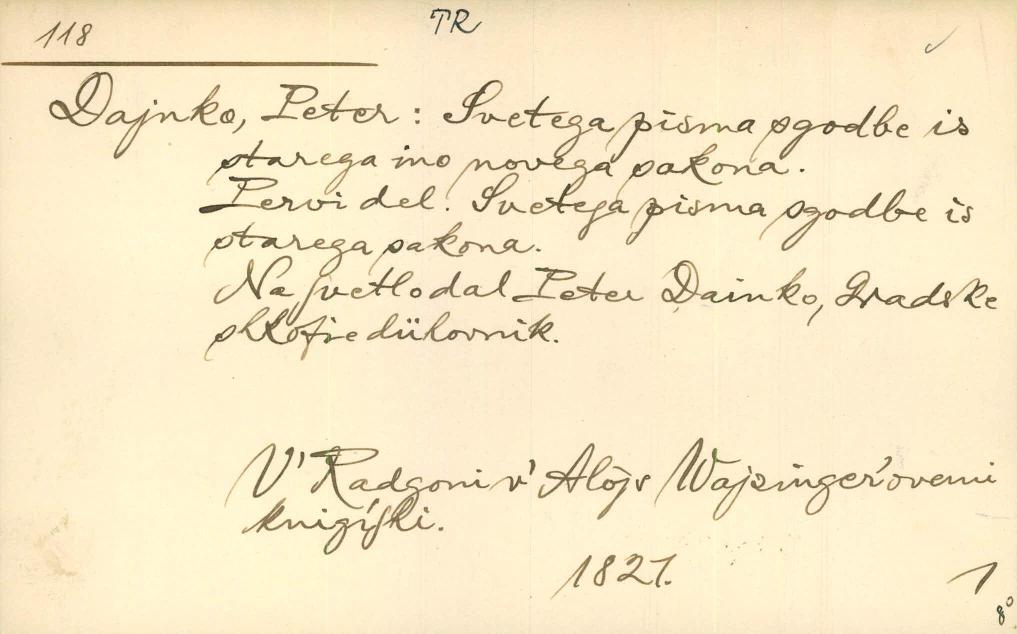 118
TR
Dajnko, Peter: Svetega pisma sgodbe is
starega ino novega sakona.
Pervi del. Svetega pisma sgodbe is
starega sakona.
Na ſvetlo dal Peter Dainko, Gradske
shkofie dühovnik.
V' Radgoni v' Alojs Wajzinger'ovemi
knigiſhi.
1821.
1
8°